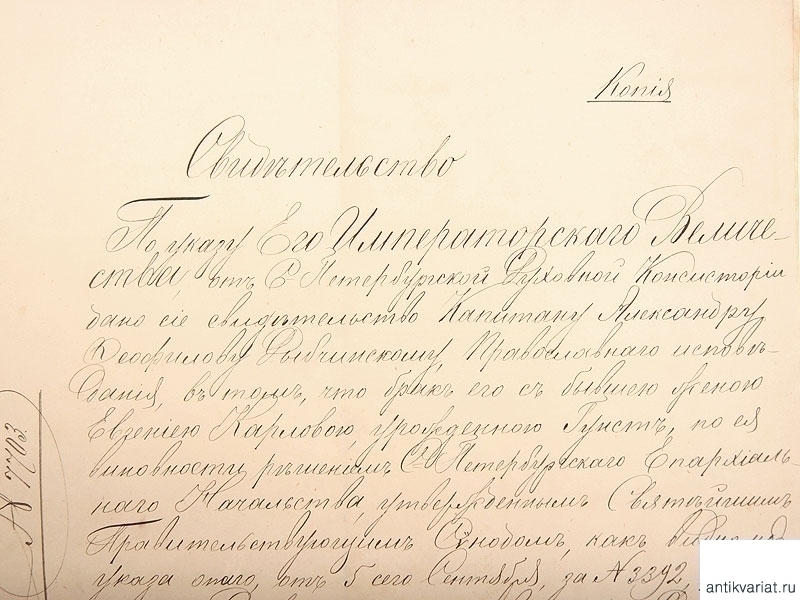 Копія
Свидѣтельство
По указу Его Императорскаго Величе-
ства, отъ С-Петербургской Духовной Консисторіи
дано сіе свидѣтельство Капитану Александру
Ѳеофилову Рыбчинскому, Православнаго исповѣ-
данія, въ томъ, что бракъ его съ бывшею женою
Евгеніею Карловою, урожденною Гунстъ, по ея
виновности, рѣшеніемъ С-Петербургскаго Епархіаль-
наго Начальства, утвержденнымъ Святѣйшимъ
Правительствующимъ Сѵнодомъ, какъ видно изъ
указа онаго, отъ 5 сего Сентября, за № 3392,
№ 7703
antikvariat.ru